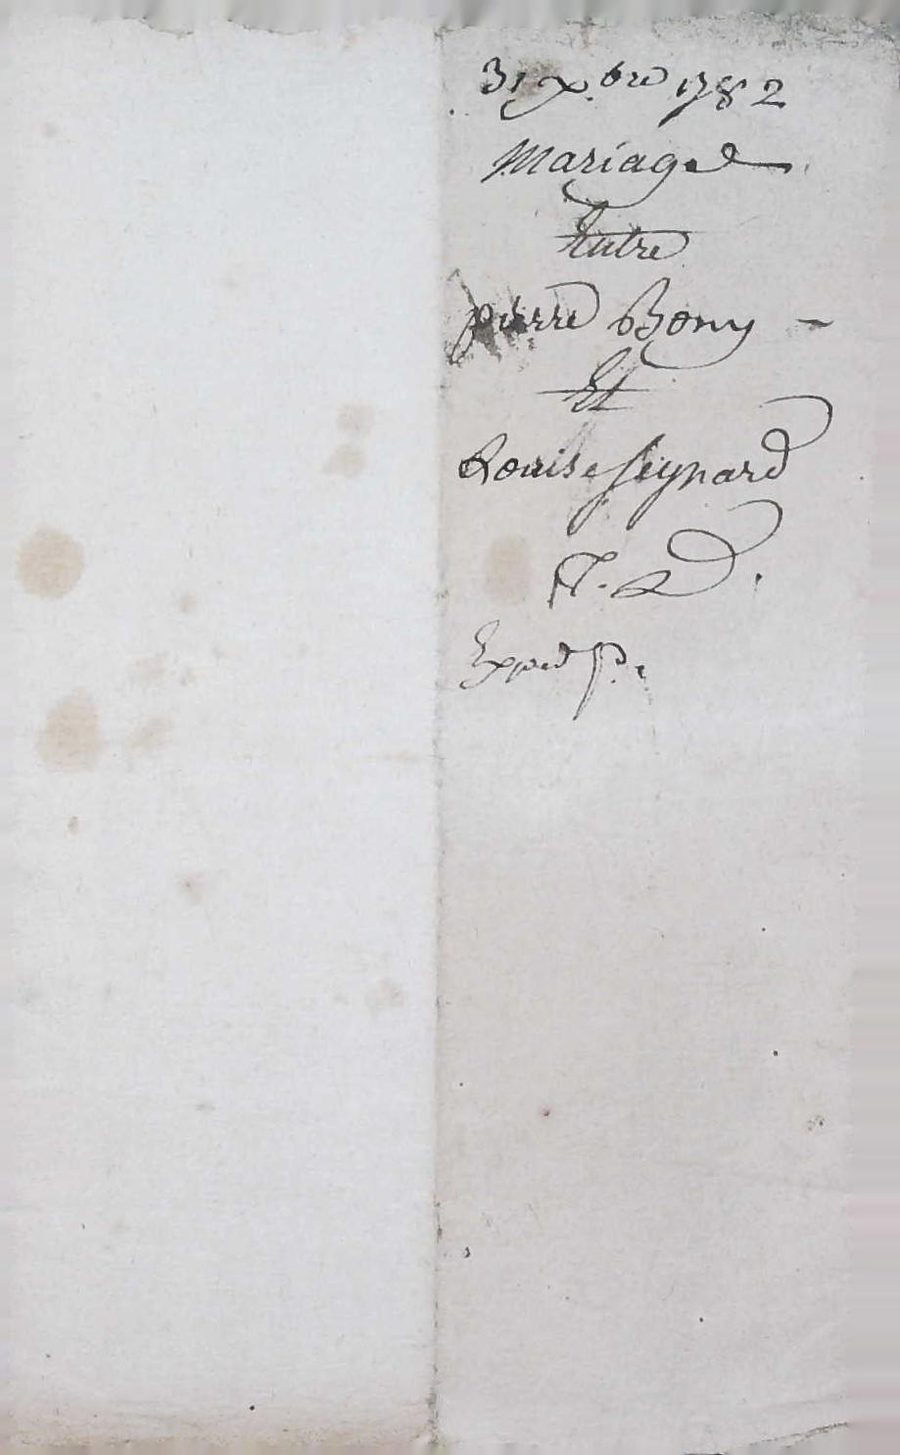 31 xbre 1782
Mariage
Entre
pierre Bony -
Et
Louise Seynard
Exped